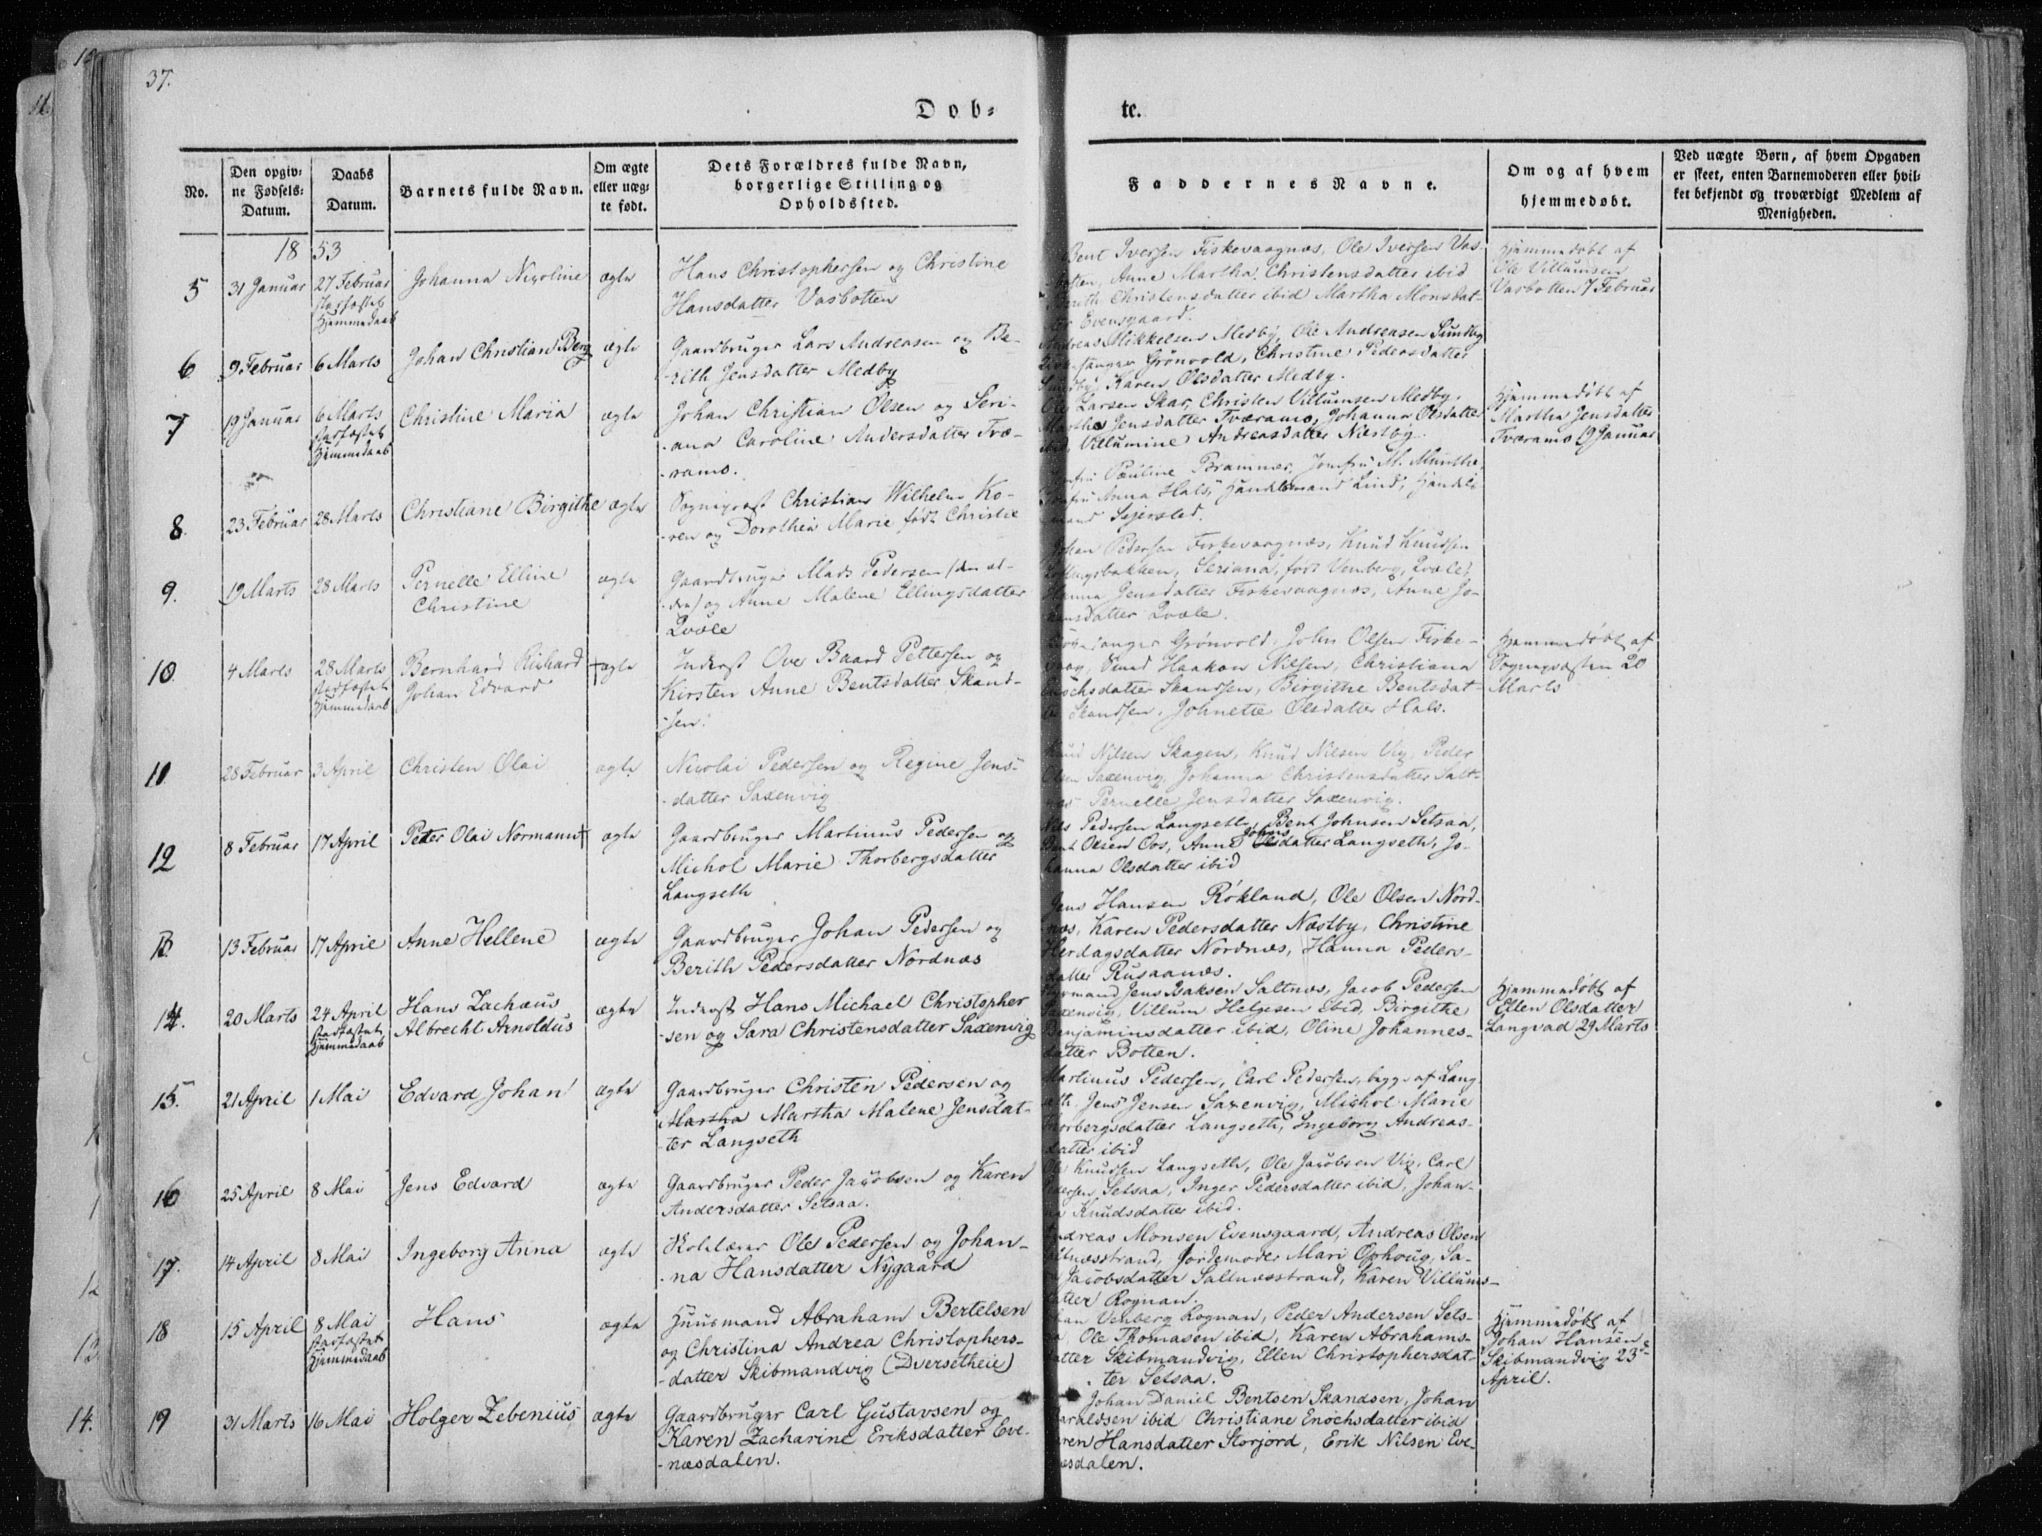 37.
Døb-
te.
No.
Den opgiv-
ne Fødsels-
Datum.
Daabs
Datum.
Barnets fulde Navn.
Om ægte
eller uæg-
te født.
Dets Forældres fulde Navn,
borgerlige Stilling og
Opholdssted.
Faddernes Navne.
Om og af hvem
hjemmedøbt.
Ved uægte Børn, af hvem Opgaven
er skeet, enten Barnemoderen eller hvil-
ket bekjendt og troværdigt Medlem af
Menigheden.
1853
5
31 Januar
27 Februar
stadfæstet
Hjemmedaab
Johanna Nicoline
ægte
Hans Christophersen og Christine
Hansdatter Vasbotten
Bent Iversen Fiskevaagnæs, Ole Iversen Vas-
botten, Anne Martha Christensdatter ibid
Christensdatter ibid Martha Monsdat-
ter Evensgaard.
Hjemmedøbt af
Ole Villumsen
Vasbotten 7 Februar
6
9 Februar
6 Marts
Johan Christian Berg
ægte
Gaardbruger Lars Andreasen og Be-
-rith Jensdatter Medby
Andreas Mikkelsen Medby, Ole Andreasen Sundby
Grönvold, Christine Pedersdatter
Karen Olsdatter Medby.
7
19 Januar
6 Marts
stadfæstet
Hjemmedaab
Christine Maria
ægte
Johan Christian Olsen og Seri-
-ana Caroline Andersdatter Tvæ-
-ramo.
Ole Larsen Skar, Christen Villumsen Medby,
Martha Jensdatter Tværamo, Johanna Olsdatter
ibid, Villumine Andreasdatter Næstby.
Hjemmedøbt af
Martha Jensdatter
Tværamo 19 Januar
8
23 Februar
28 Marts
Christiane Birgithe
ægte
Sognepræst Christian Wilhelm Ko-
-ren og Dorothea Marie født Christie
Jomfru Pauline Brammer, Jomfru M. Munthe,
Jomfru Anna Hals, Handelsmand Lind, Handels
mand Sejersted.
9.
19 Marts
28 Marts
Pernelle Elline
Christine
ægte
Gaardbruger Mads Pedersen (den æl-
dre) og Anne Malene Ellingsdatter
Qvæle
Johan Pedersen Fiskevaagnæs, Knud Knudsen
Seriana, født Venberg, Qvæle,
Hanna Jensdatter Fiskevaagnæs, Anne Jo-
hansdatter Qvæle.
10
4 Marts
28 Marts
stadfæstet
Hjemmedaab
Bernhard Richard
Johan Edvard
+ ægte
Inderst Ove Baard Pettersen og
Kirsten Anne Bentsdatter Skand-
-sen.
Kirkesanger Grönvold, John Olsen Fiske-
vaag, Haakon Nilsen, Christiana
Enochsdatter Skandsen, Birgithe Bentsdat-
ter Skandsen, Johnette Olsdatter Hals.
Hjemmedøbt af
Sognepræsten 20
Marts
11
28 Februar
3 April
Christen Olai
ægte
Nicolai Pedersen og Regine Jens-
-datter Saxenvig
Knud Nilsen Skagen, Knud Nilsen Vig, Peder
Olsen Saxenvig, Johanna Christensdatter Salt-
næs Pernelle Jensdatter Saxenvig.
12
8 Februar
17 April
Peder Olai Normann +
ægte
Gaardbruger Martinus Pedersen og
Michol Marie Thorbergsdatter
Langseth
Nils Pedersen Langseth, Bent Johnsen Setsaa,
Bent Olsen Oos, Anne Johnsdatter Langseth, Jo-
hanna Olsdatter ibid
13
13 Februar
17 April
Anne Hellene
ægte
Gaardbruger Johan Pedersen og
Berith Pedersdatter Nordnæs
Jens Hansen Røkland, Ole Olsen Nord-
næs, Karen Pedersdatter Næstby, Christine
Herdagsdatter Nordnæs, Hanna Peders-
datter Rusaanæs.
14
20 Marts
24 April
stadfæstet
Hjemmedaab
Hans Zachæus
Albrecht Arnoldus
ægte
Inderst Hans Michael Christopher
-sen og Sara Christensdatter Saxenvig
Jens Baksen Saltnæs, Jacob Pedersen
Saxenvig, Villum Helgesen ibid, Birgithe
Benjaminsdatter ibid, Oline Johannes-
datter Botten.
Hjemmedøbt af
Ellen Olsdatter
Langvad 29 Marts
15.
21 April
1 Mai
Edvard Johan
ægte
Gaardbruger Christen Pedersen og
Martha Martha Malene Jensdat-
-ter Langseth
Martinus Pedersen, Carl Pedersen, begge af Lang
seth, Jens Jensen Saxenvig, Michol Marie
Thorbergsdatter Langseth, Ingeborg Andreas-
datter ibid
16
25 April
8 Mai
Jens Edvard
ægte
Gaardbruger Peder Jacobsen og Karen
Andersdatter Setsaa.
Ole Knudsen Langseth, Ole Jacobsen Vig, Carl
Pedersen Setsaa, Inger Pedersdatter ibid, Johan-
na Knudsdatter ibid.
17.
14 April
8 Mai
Ingeborg Anna
ægte
Skolelærer Ole Pedersen og Johan-
-na Hansdatter Nygaard
Andreas Monsen Evensgaard, Andreas Olsen
Saltnæsstrand, Jordemoder Mari Ophoug, Sa-
ra Jacobsdatter Saltnæsstrand, Karen Villums-
datter Rognan.
18
15 April
8 Mai
stadfæstet
Hjemmedaab
Hans
ægte
Huusmand Abraham Bertelsen
og Christina Andrea Christophers-
-datter Skibmandvig (Dversetheie)
Johan Venberg Rognan, Peder Andersen Sets-
aa, Ole Thomasen ibid, Karen Abrahams-
datter Skibmandvig, Ellen Christophersdat-
ter Setsaa.
Hjemmedøbt af
Johan Hansen
Skibmandvig 23de
April.
19
31 Marts
16 Mai
Holger Zebenius
ægte
Gaardbruger Carl Gustavsen og
Karen Zacharine Eriksdatter Eve-
-næsdalen.
Johan Daniel Bentsen Skandsen, Johan
Haraldsen ibid Christiane Enochsdatter ibid
Karen Hansdatter Storjord, Erik Nilsen Eve-
næsdalen.
12
13
14.